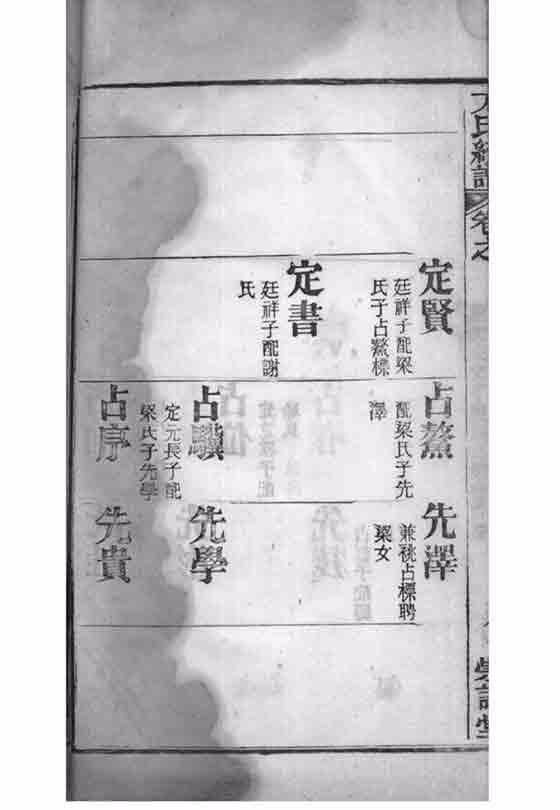 氏續譜 卷之
定賢
廷祥子配梁
氏子占鰲標
定書
廷祥子配謝
氏
占鰲
配梁氏子先
澤
占驥
定元長子配
梁氏子先學
占序
先澤
兼祧占標聘
梁女
先學
先貴